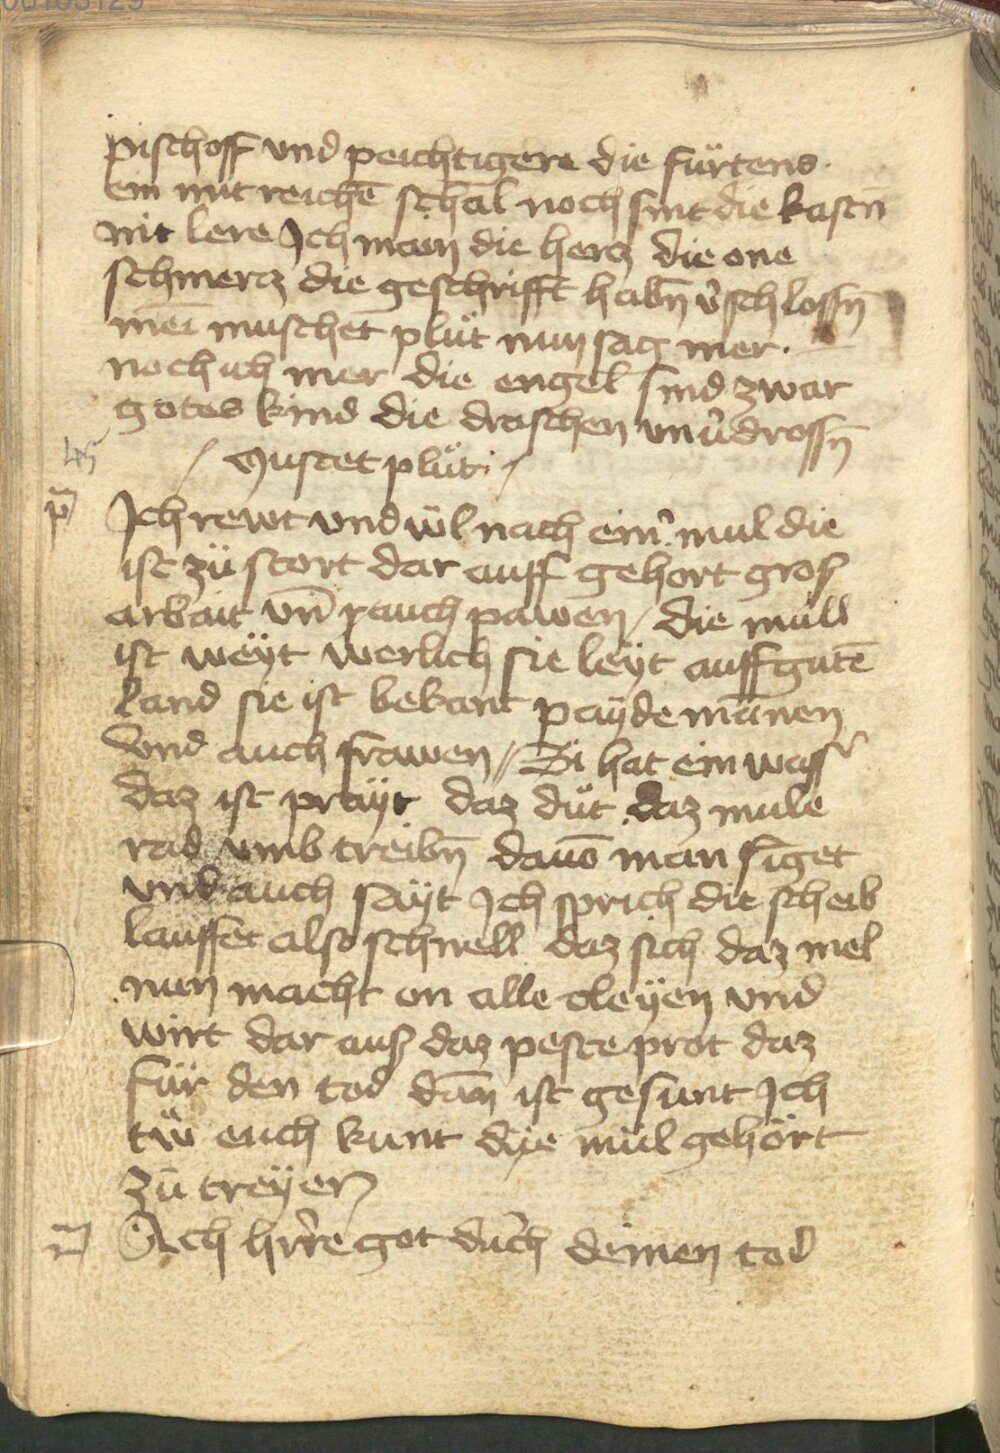 pischoff vnd peichtigere die fürtens
ein mit reichē schal noch sint die kastn̄
nit lere Ich man die hercz die one
schmercz die geschrifft habn̄ v̓schlossn̄
muschet plüt nun sag mer.
noch ich mer die engel sind zwar
gotes kind die draschen vnv̓drossn̄
45
/ Mustet plüt /
p̄ Ich rewt vnd wil nach eim̓ mul die
ist zü stort dar auff gehort groß
arbait vn̄ auch pawen / die müll
ist weÿt werlich sie leÿt auff gutē
land sie ist bekant paÿde mānen
Vnd auch frawen // Si hat ein wass̓
daz ist praÿt daz düt daz mule
rad vmb treibn̄ dauō man singet
vnd auch saÿt Ich sprich die scheib
lauffet also schnell daz sich daz mel
nun macht on alle cleÿen vnd
wirt dar auß daz peste prot daz
für den tod dan̄ ist gesunt Ich
tw̎ euch kunt dye mül gehört
zü treÿer
Ach hr̓re got du̓ch deinen tod